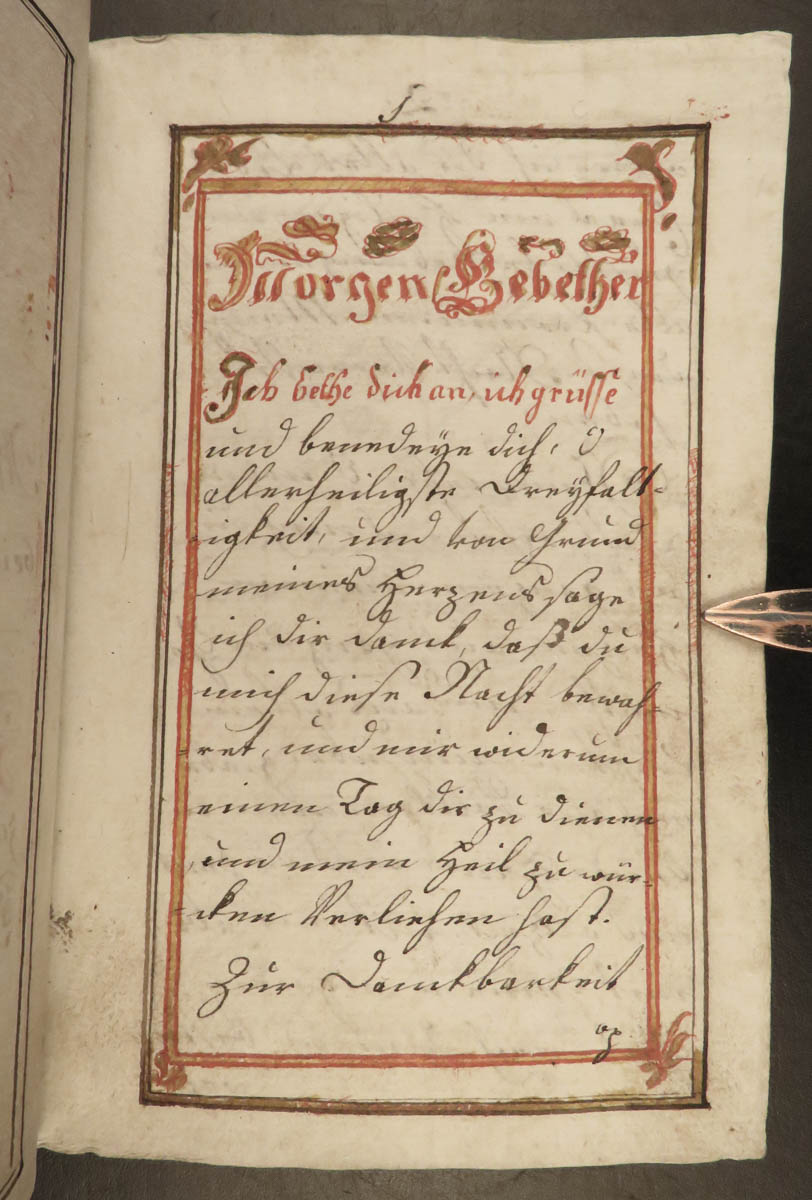 1
Morgen Gebether
Ich bethe dich an, ich grüsse
und benedeye dich, O
allerheiligste Dreyfalt=
=igkeit, und von Grund
meines Herzens sage
ich dir Danck, daß du
mich diese Nacht bewah=
=ret, und mir widerum
einen Tag dir zu dienen
und mein Heil zu wür=
=cken Verliehen hast.
Zur Danckbarkeit